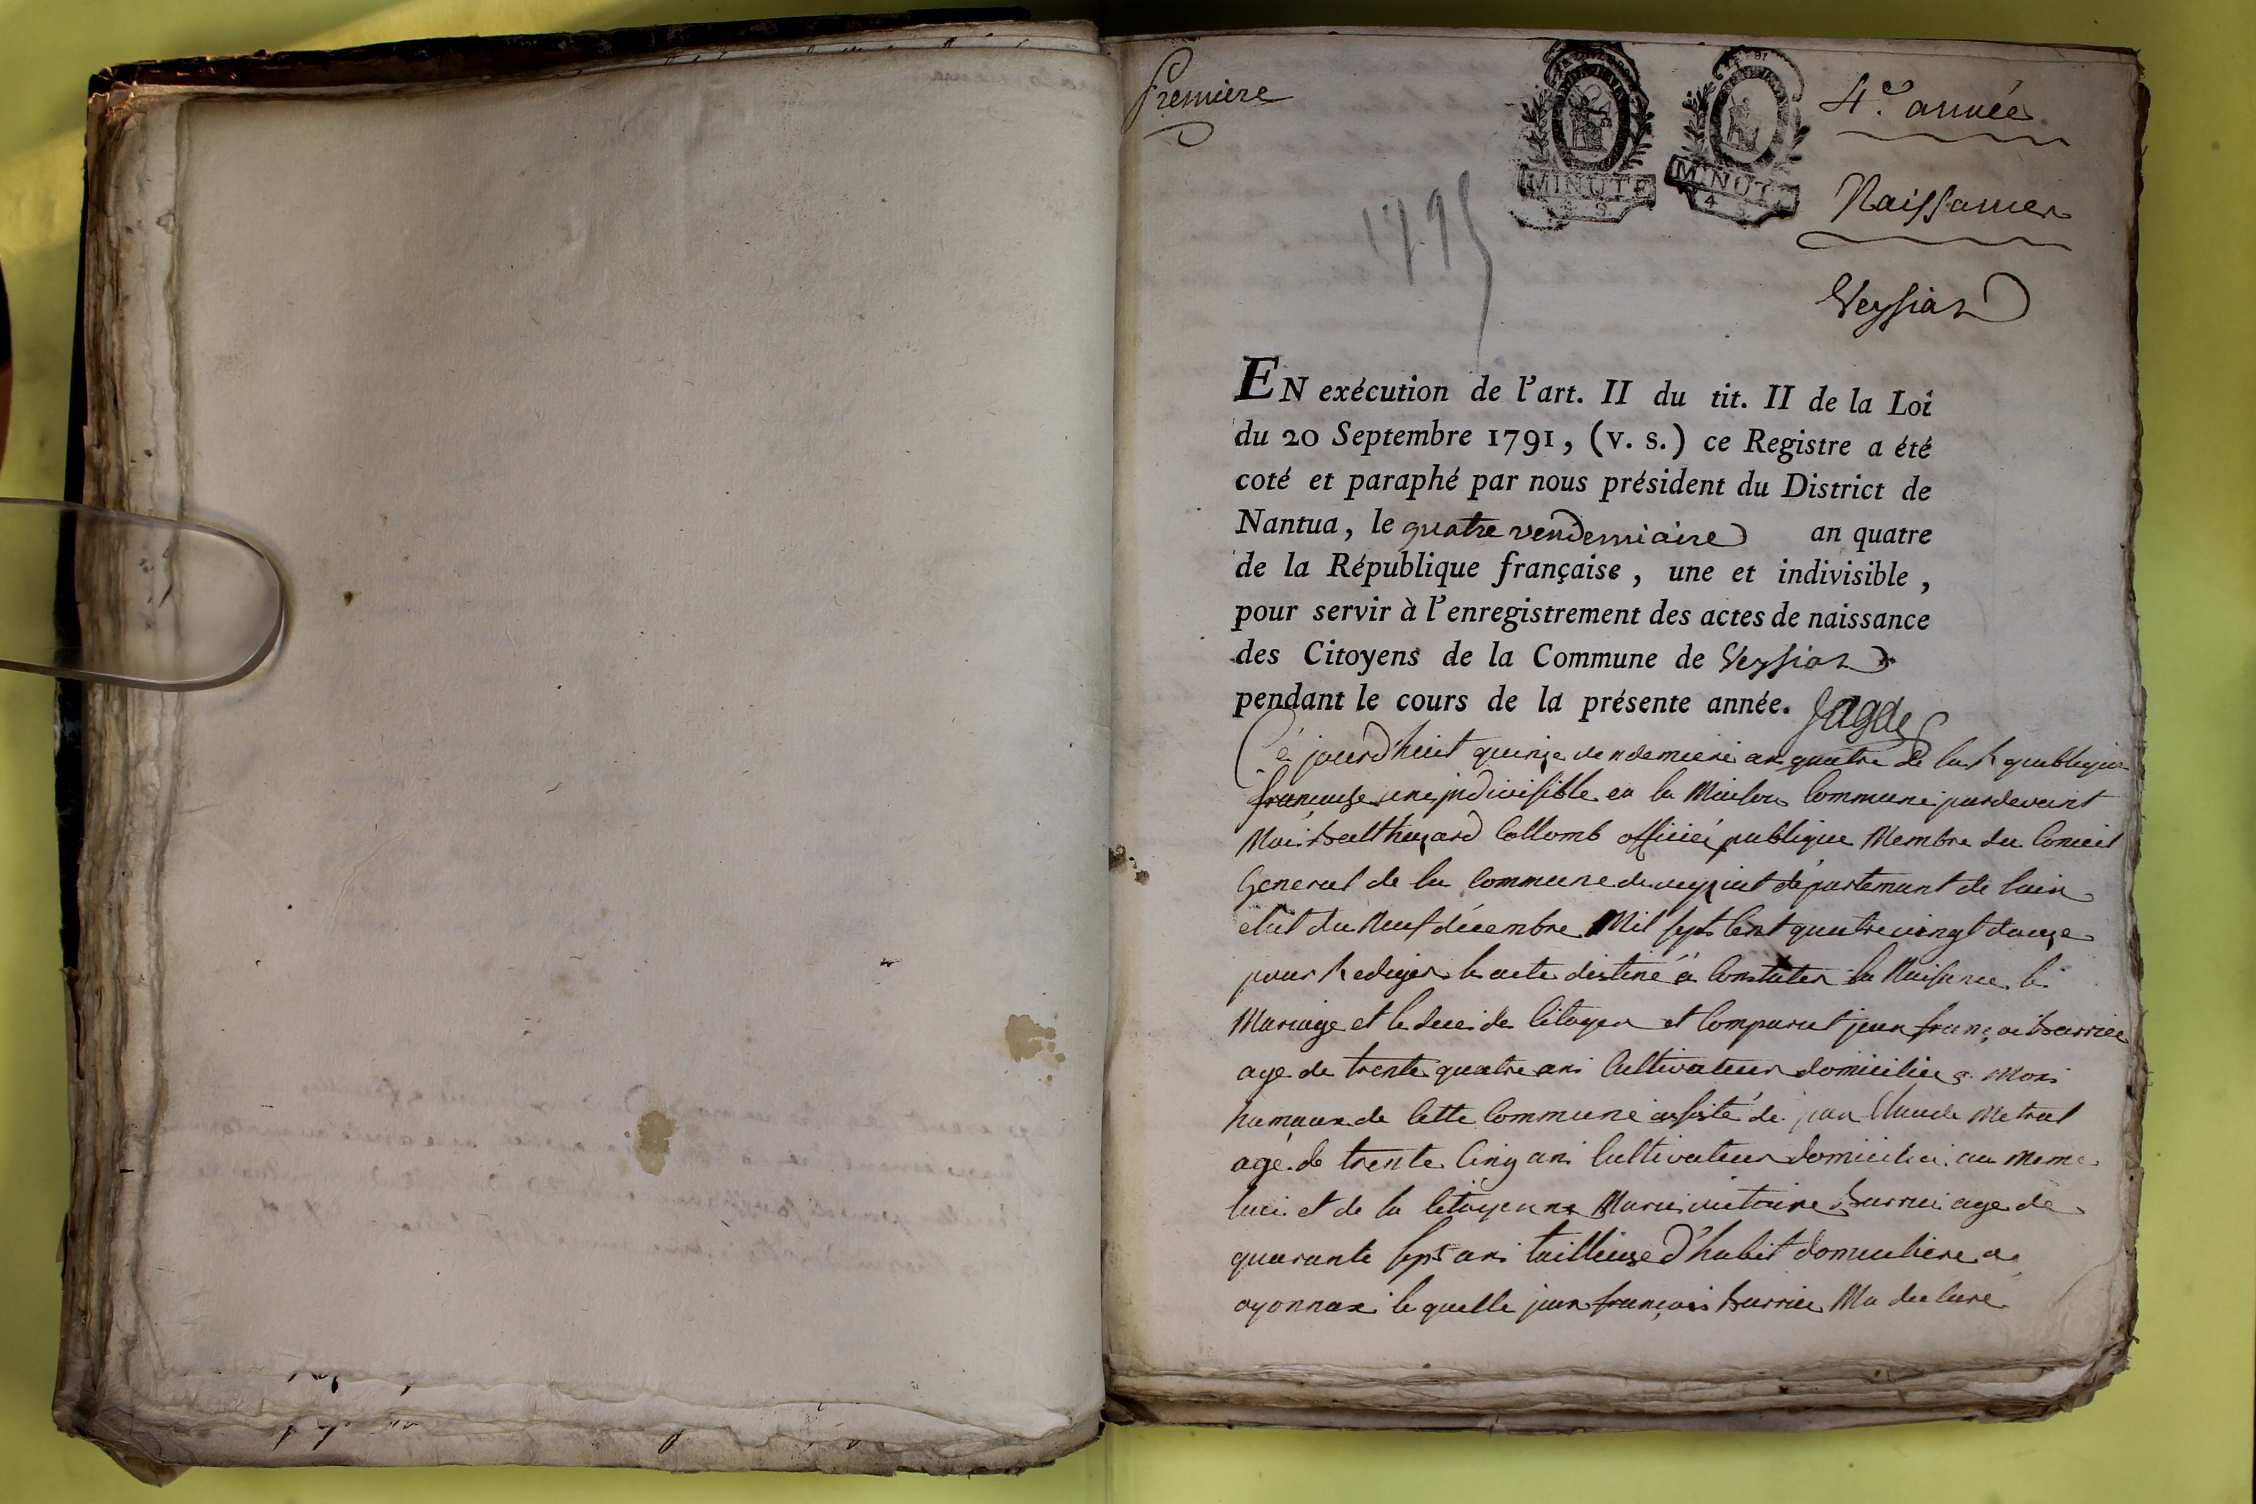 Premiere
MINUTE
MINUTE
4
4.e année
Naissances
Veysiat
1795
EN exécution de l'art. II du tit. II de la Loi
du 20 Septembre 1791, (v. s.) ce Registre a été
coté et paraphé par nous président du District de
Nantua, le quatre vendemiaire an quatre
de la République française, une et indivisible,
pour servir à l'enregistrement des actes de naissance
des Citoyens de la Commune de Veysiat
pendant le cours de la présente année.
Cé jourd'huit quinze vendemiere an quatre de la Republique
françaize une jndivisible en la Maison Commune pardevant
Moi Balthazard Collomb officié publique Membre du Conseil
General de la Commune de veyziat département de lain
elut du Neuf décembre Mil sept Cent quatre vingt douze
pour Rediger le acte destiné a Constater la Naisance le
Mariage et le decé de Citoyen et Comparut jean françoi barrié
age de trente quatre ans Cultivateur domicilié a
hameaux de Cette Commune assisté de jean Claude Metral
agé de trente Cinq ans Cultivateur domicilié au meme
lieu et de la Citoyenne Marie victoire Barrié age de
quarante sept ans tailleuse d'habit domiciliere a
oyonnax le quelle jean françois barrié Ma declaré